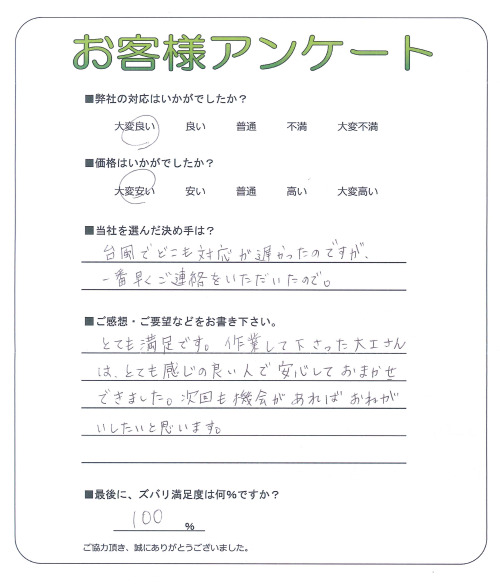 お客様アンケート
■弊社の対応はいかがでしたか？
大変良い 良い 普通 不満 大変不満
■価格はいかがでしたか？
大変安い 安い 普通 高い 大変高い
■当社を選んだ決め手は？
台風でどこも対応が遅かったのですが、
一番早くご連絡をいただいたので。
■ご感想・ご要望などをお書き下さい。
とても満足です。作業して下さった大工さん
は、とても感じの良い人で安心しておまかせ
できました。次回も機会があればおねが
いしたいと思います。
■最後に、ズバリ満足度は何％ですか？
100 ％
ご協力頂き、誠にありがとうございました。